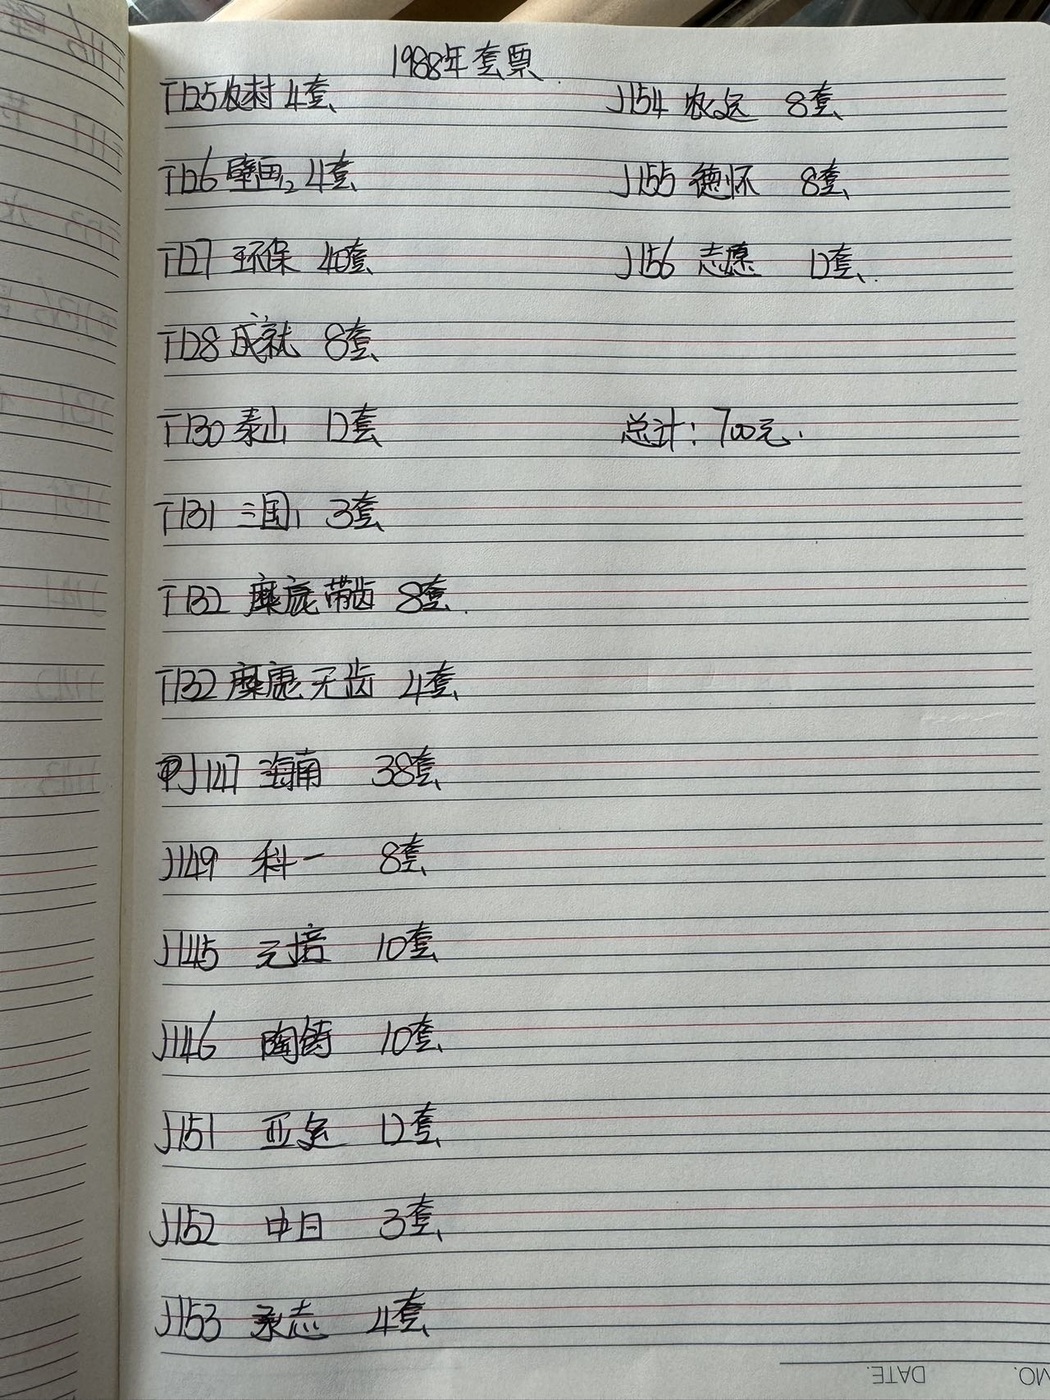 1988年套票
T125农村 4套
T126壁画2 4套
T127 环保 40套
T128成就 8套
T130泰山 12套
T131 三国1 3套
T132 麋鹿带齿 8套.
T132麋鹿无齿 4套
J147 海南 38套
J149 科一 8套
J145 元培 10套
J146 陶铸 10套
J151 亚运 12套
J152 中日 3套
J153 承志 4套
J154 农运 8套
J155 德怀 8套
J156 志愿 12套.
总计：700元.
DATE.